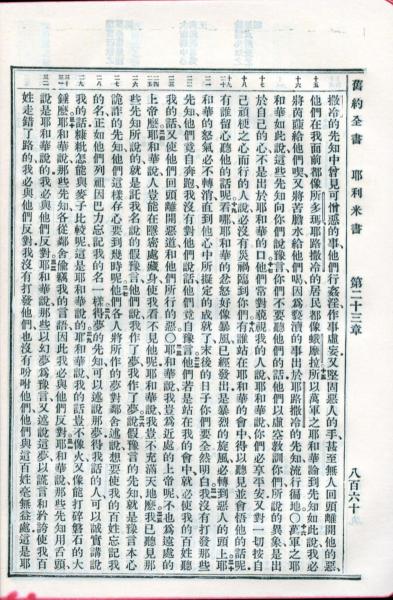 舊約全書 耶利米書 第二十三章 八百六十
撒冷的先知中曾見可憎惡的事他們行姦淫作事虛妄又堅固惡人的手甚至無人回頭離開他的惡
他們在我面前都像所多瑪耶路撒冷的居民都像蛾摩拉所以萬軍之耶和華論到先知如此說我必
將茵蔯給他們喫又將苦膽水給他們喝因為褻瀆的事出於耶路撒冷的先知流行徧地○萬軍之耶
和華如此說這些先知向你們說豫言你們不要聽他們的話他們以虛空教訓你們所說的異象是出
於自己的心不是出於耶和華的口他們常對藐視我的人說耶和華說你們必享平安又對一切按自
己頑梗之心而行的人說必沒有災禍臨到你們有誰站在耶和華的會中得以聽見並會悟他的話呢
有誰留心聽他的話呢看哪耶和華的忿怒好像暴風已經發出是暴烈的旋風必轉到惡人的頭上耶
和華的怒氣必不轉消直到他心中所擬定的成就了末後的日子你們要全然明白我沒有打發那些
先知他們竟自奔跑我沒有對他們說話他們竟自豫言他們若是站在我的會中就必使我的百姓聽
我的話又使他們回頭離開惡道和他們所行的惡○耶和華說我豈為近處的上帝呢不也為遠處的
上帝麽耶和華說人豈能在隱密處藏身使我看不見他呢耶和華說我豈不充滿天地麽我已聽見那
些先知所說的就是託我名說的假豫言他們說我作了夢我作了夢說假豫言的先知就是豫言本心
詭詐的先知他們這樣存心要到幾時呢他們各人將所作的夢對鄰舍述說想要使我的百姓忘記我
的名正如他們列祖因巴力忘記我的名一樣得夢的先知可以述說那夢得我話的人可以誠實講說
我的話糠粃怎能與麥子比較呢這是耶和華說的耶和華說我的話豈不像火又像能打碎磐石的大
錘麽耶和華說那些先知各從鄰舍偷竊我的言語因此我必與他們反對耶和華說那些先知用舌頭
說是耶和華說的我必與他們反對耶和華說那些以幻夢為豫言又述說這夢以謊言和矜誇使我百
姓走錯了路的我必與他們反對我沒有打發他們也沒有吩咐他們他們與這百姓毫無益處這是耶